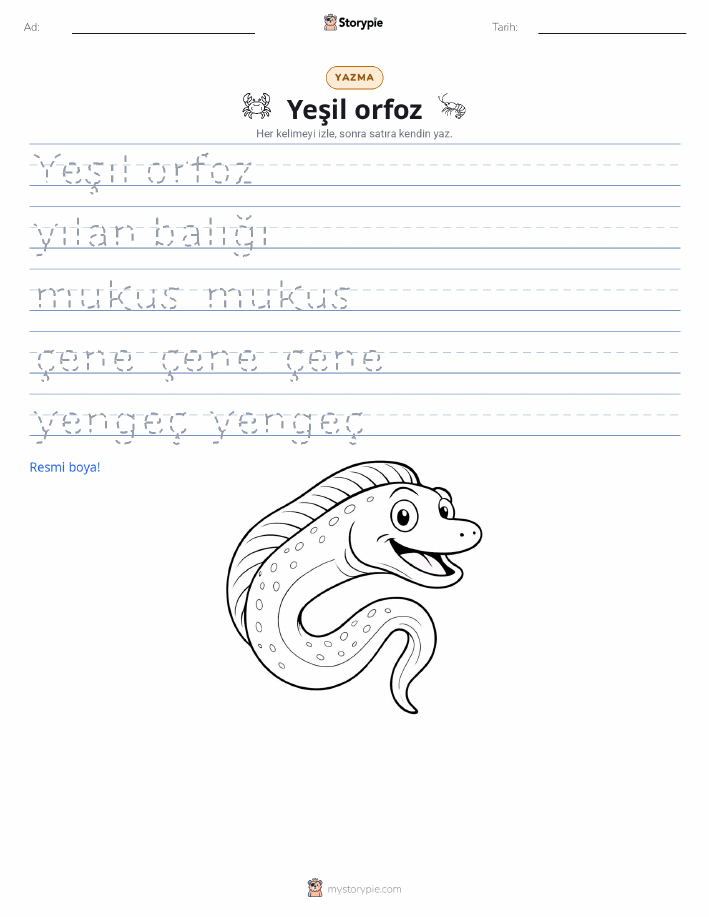 Ad:
Storypie
Tarih:
YAZMA
Yeşil orfoz
Her kelimeyi izle, sonra satıra kendin yaz.
Yeşil orfoz
yılan balığı
mukus mukus
çene çene çene
yengeç yengeç
Resmi boya!
mystorypie.com